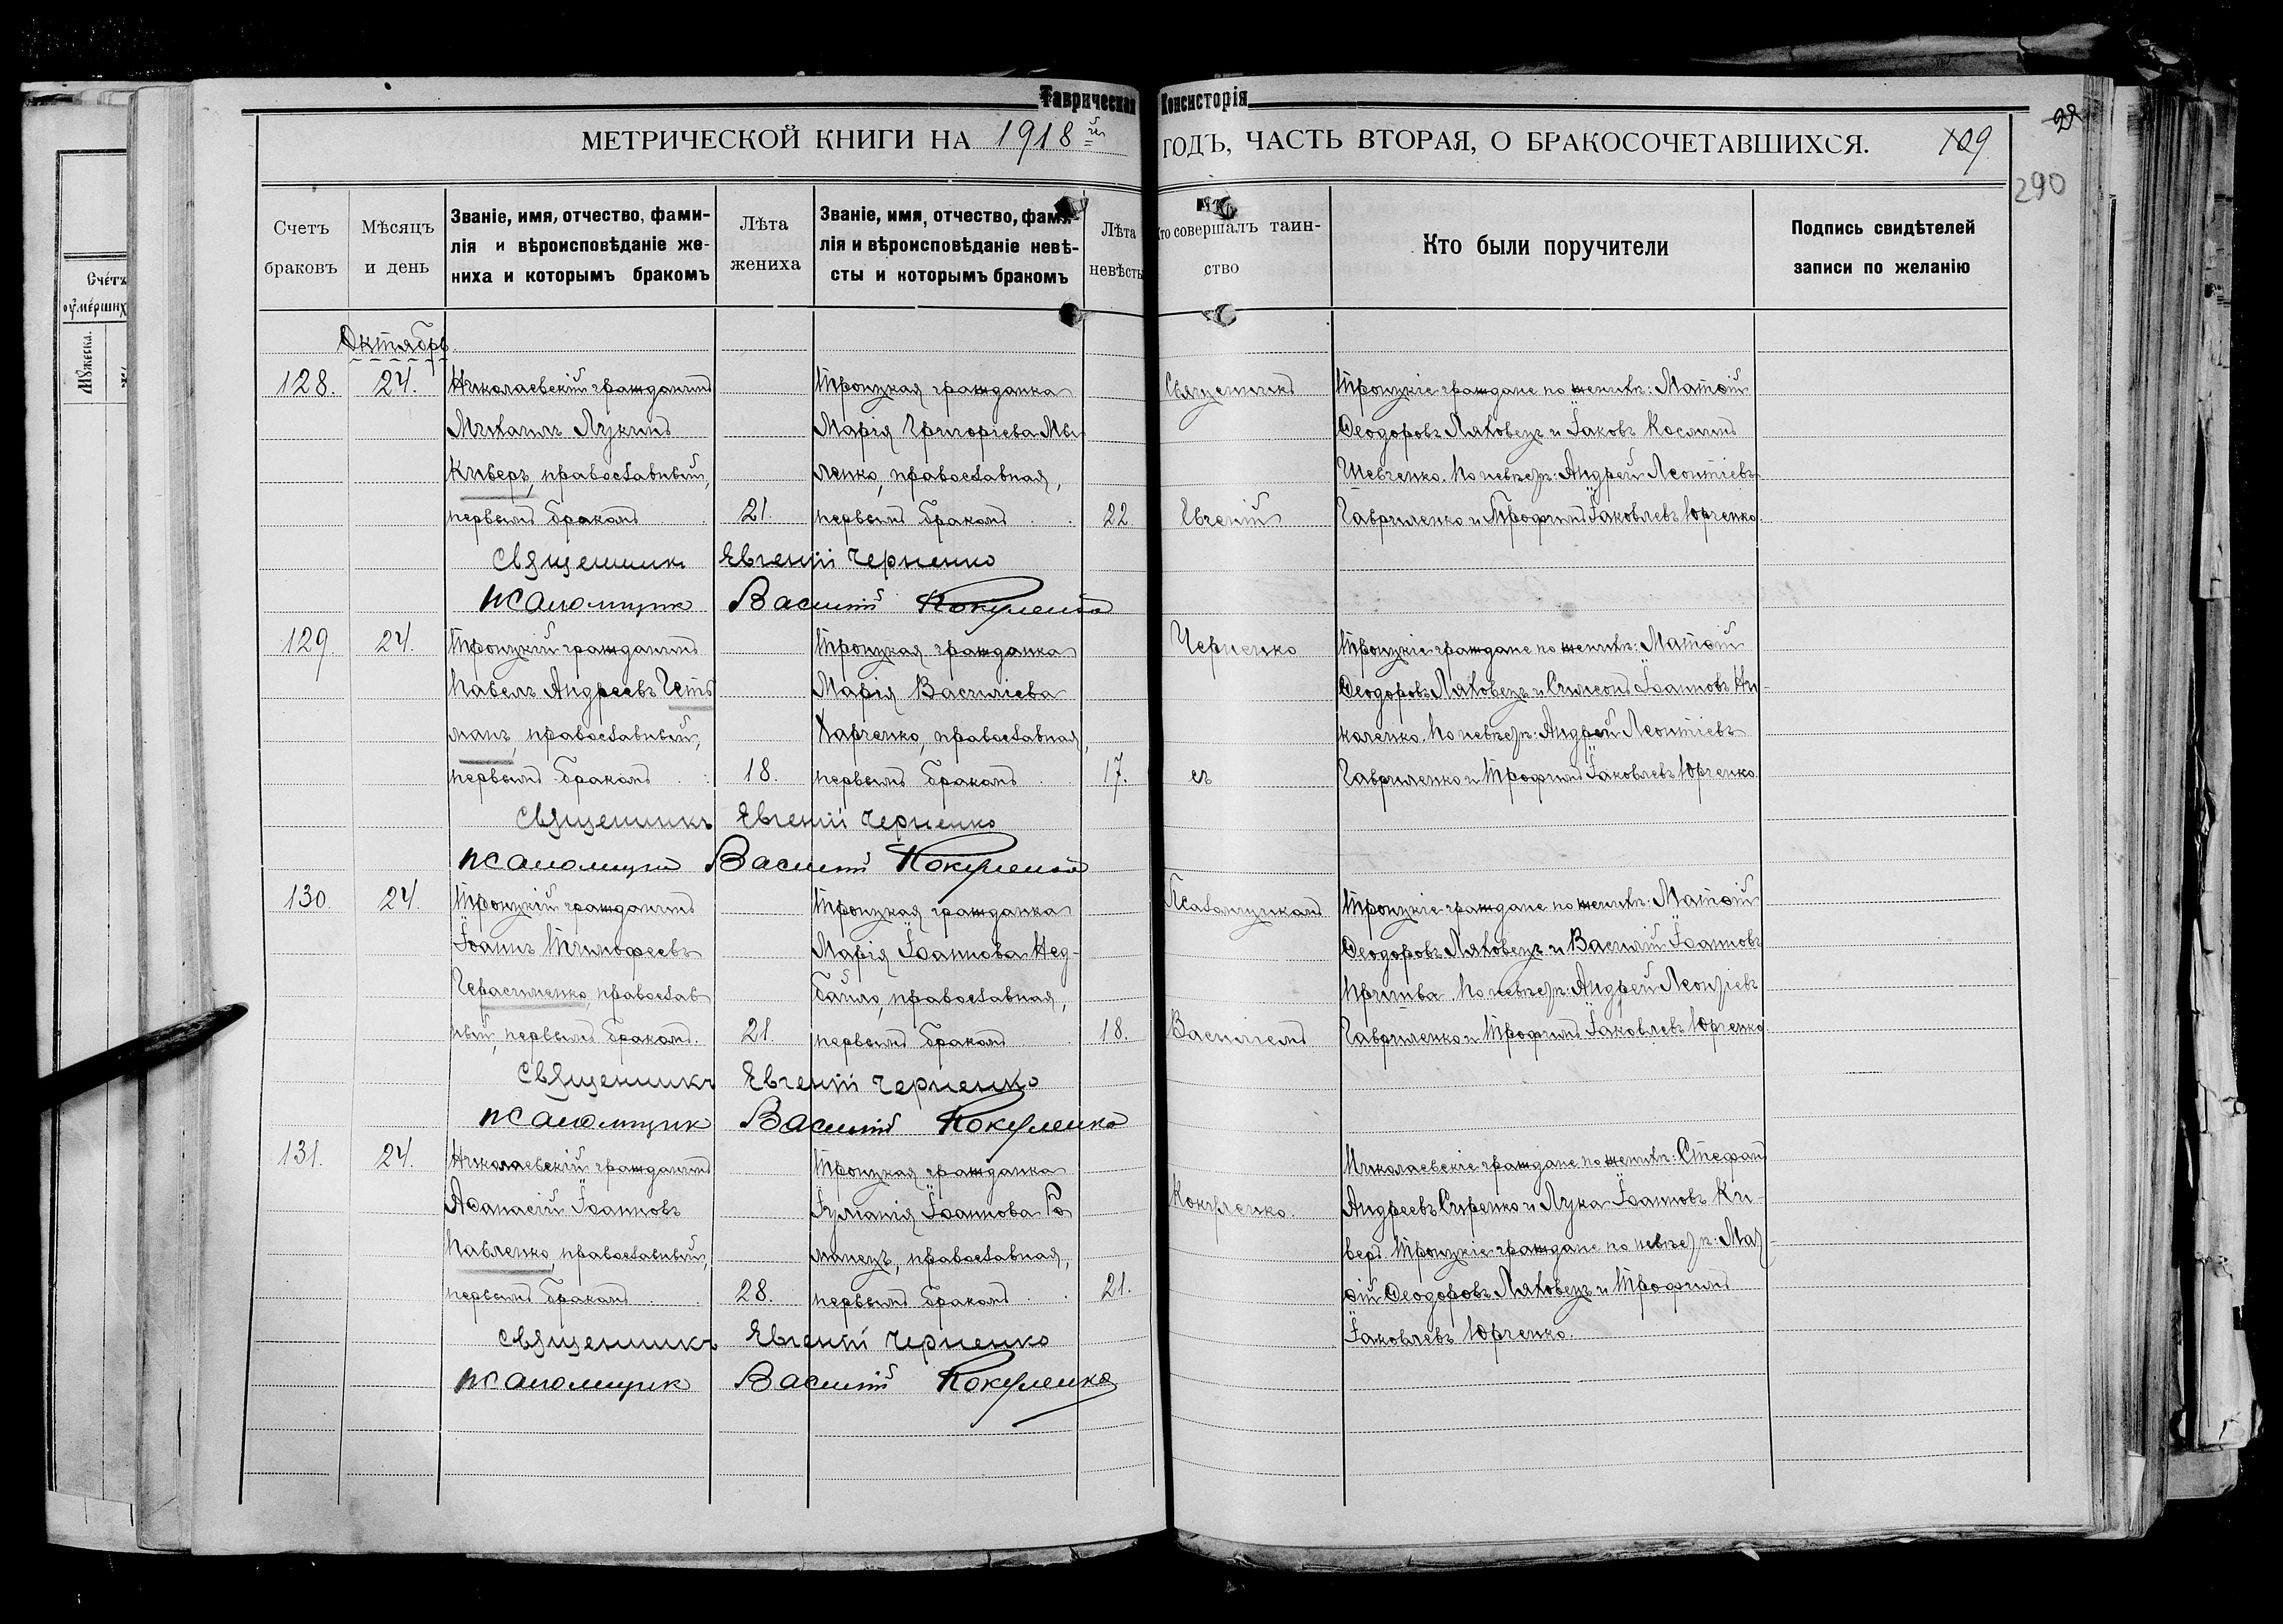 Таврическая Консисторія
МЕТРИЧЕСКОЙ КНИГИ НА 1918 й ГОДЪ, ЧАСТЬ ВТОРАЯ, О БРАКОСОЧЕТАВШИХСЯ. 109
290
Счетъ браковъ
Мѣсяцъ и день
Званіе, имя, отчество, фами-
лія и вѣроисповѣданіе же-
ниха и которымъ бракомъ
Лѣта жениха
Званіе, имя, отчество, фами-
лія и вѣроисповѣданіе невѣ-
сты и которымъ бракомъ
Лѣта невѣсты
Кто совершалъ таин-
ство
Кто были поручители
Подпись свидѣтелей
записи по желанію
Счéтъ
оу҆мéршихъ
Мꙋ́жеска.
Октябрь
128. 24.
Николаевскій гражданинъ
Михаилъ Лукинъ
Киверъ, православный,
первымъ бракомъ 21.
Троицкая гражданка
Марія Григоріева Мы
ленко, православная,
первымъ бракомъ 22
Священникъ
Евгеній
Троицкіе граждане по женихѣ: Матѳій
Ѳеодоровъ Ляховецъ и Іаковъ Косминъ
Шевченко. По невѣстѣ: Андрей Леонтіевъ
Гавриленко и Трофимъ Іаковлевъ Юрченко.
Священникъ Евгеній Черненко
псаломщик Василій Кокуленко
129 24.
Троицкій гражданинъ
Павелъ Андреевъ Геть
манъ, православный,
первымъ бракомъ 18.
Троицкая гражданка
Марія Василіева
Харченко, православная,
первымъ бракомъ 17.
Черненко
съ
Троицкіе граждане по женихѣ: Матѳій
Ѳеодоровъ Ляховецъ и Симеонъ Іоанновъ Ни-
коленко. По невѣстѣ: Андрей Леонтіевъ
Гавриленко и Трофимъ Іаковлевъ Юрченко.
Священникъ Евгеній Черненко
псаломщикъ Василій Кокуленко
130 24.
Троицкій гражданинъ
Іоаннъ Тимофеевъ
Герасименко, православ
ный, первымъ бракомъ. 21.
Троицкая гражданка
Марія Іоаннова Нед-
байло, православная,
первымъ бракомъ 18.
Псаломщикомъ
Василіемъ
Троицкіе граждане по женихѣ: Матѳій
Ѳеодоровъ Ляховецъ и Василій Іоанновъ
По невѣстѣ: Андрей Леонтіевъ
Гавриленко и Трофимъ Іаковлевъ Юрченко
Священникъ Евгеній Черненко
псаломщик Василій Кокуленко
131. 24.
Николаевскій гражданинъ
Аѳанасій Іоанновъ
Павленко, православный,
первымъ бракомъ 28.
Троицкая гражданка
Іуліанія Іоаннова Ро
манецъ, православная,
первымъ бракомъ 21.
Кокуленко.
Николаевскіе граждане по женихѣ: Стефанъ
Андреевъ Сиренко и Лука Іоанновъ Ки-
веръ. Троицкіе граждане по невѣстѣ: Мат-
ѳій Ѳеодоровъ Ляховецъ и Трофимъ
Іаковлевъ Юрченко.
Священникъ Евгеній Черненко
псаломщик Василій Кокуленко